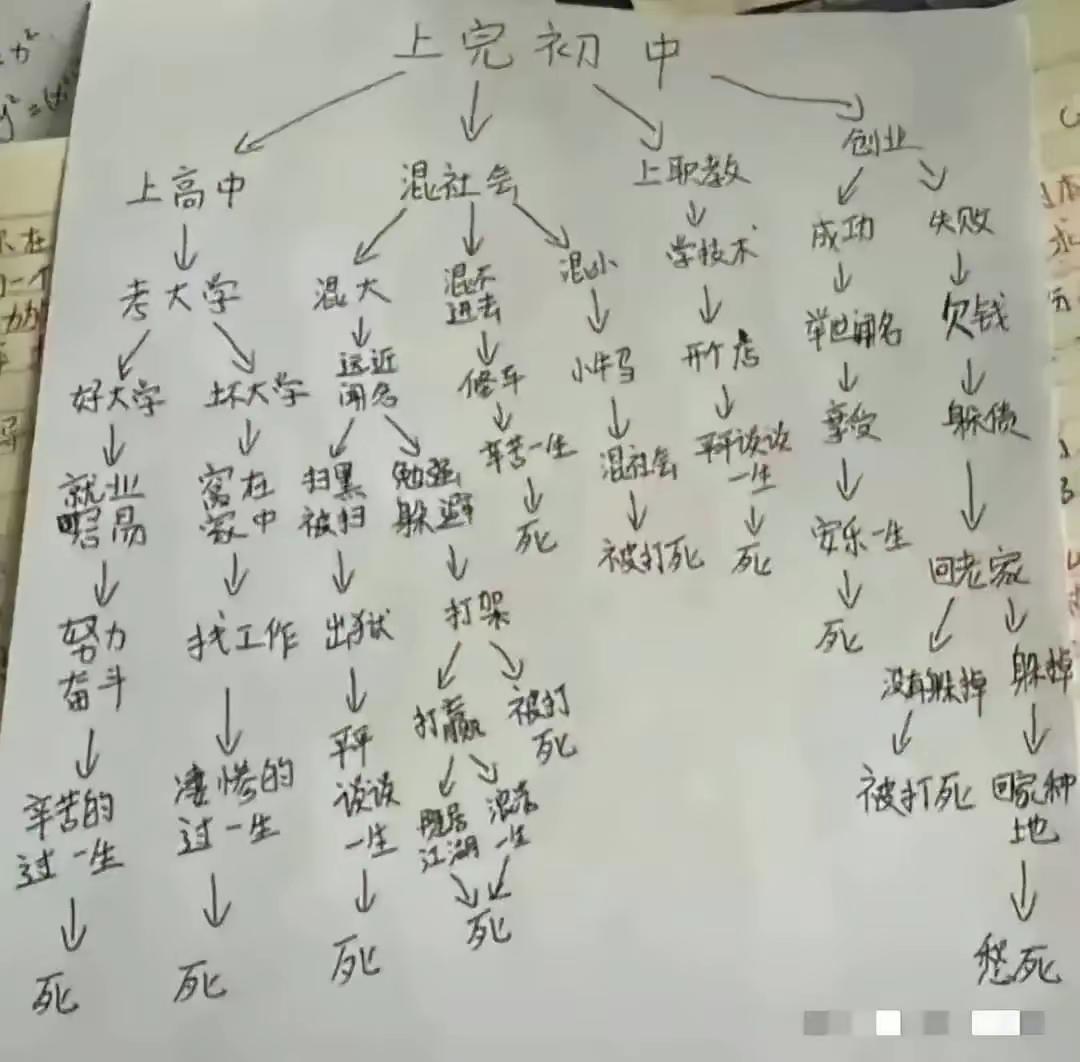 上完初中
上高中
考大学
好大学
就业
容易
努力
奋斗
辛苦的
过一生
死
坏大学
窝在
家中
找工作
凄惨的
过一生
死
混社会
混大
远近
闻名
扫黑
被扫
出狱
平平
谈谈
一生
死
勉强
躲避
打架
打赢
隐居
江湖
混荡
一生
死
被打
死
混不
进去
修车
辛苦一生
死
混小
小牛马
混社会
被打死
上职教
学技术
开个店
平平谈谈
一生
死
创业
成功
举世闻名
享受
安乐一生
死
失败
欠钱
躲债
回老家
没有躲掉
被打死
躲掉
回家种
土地
愁死